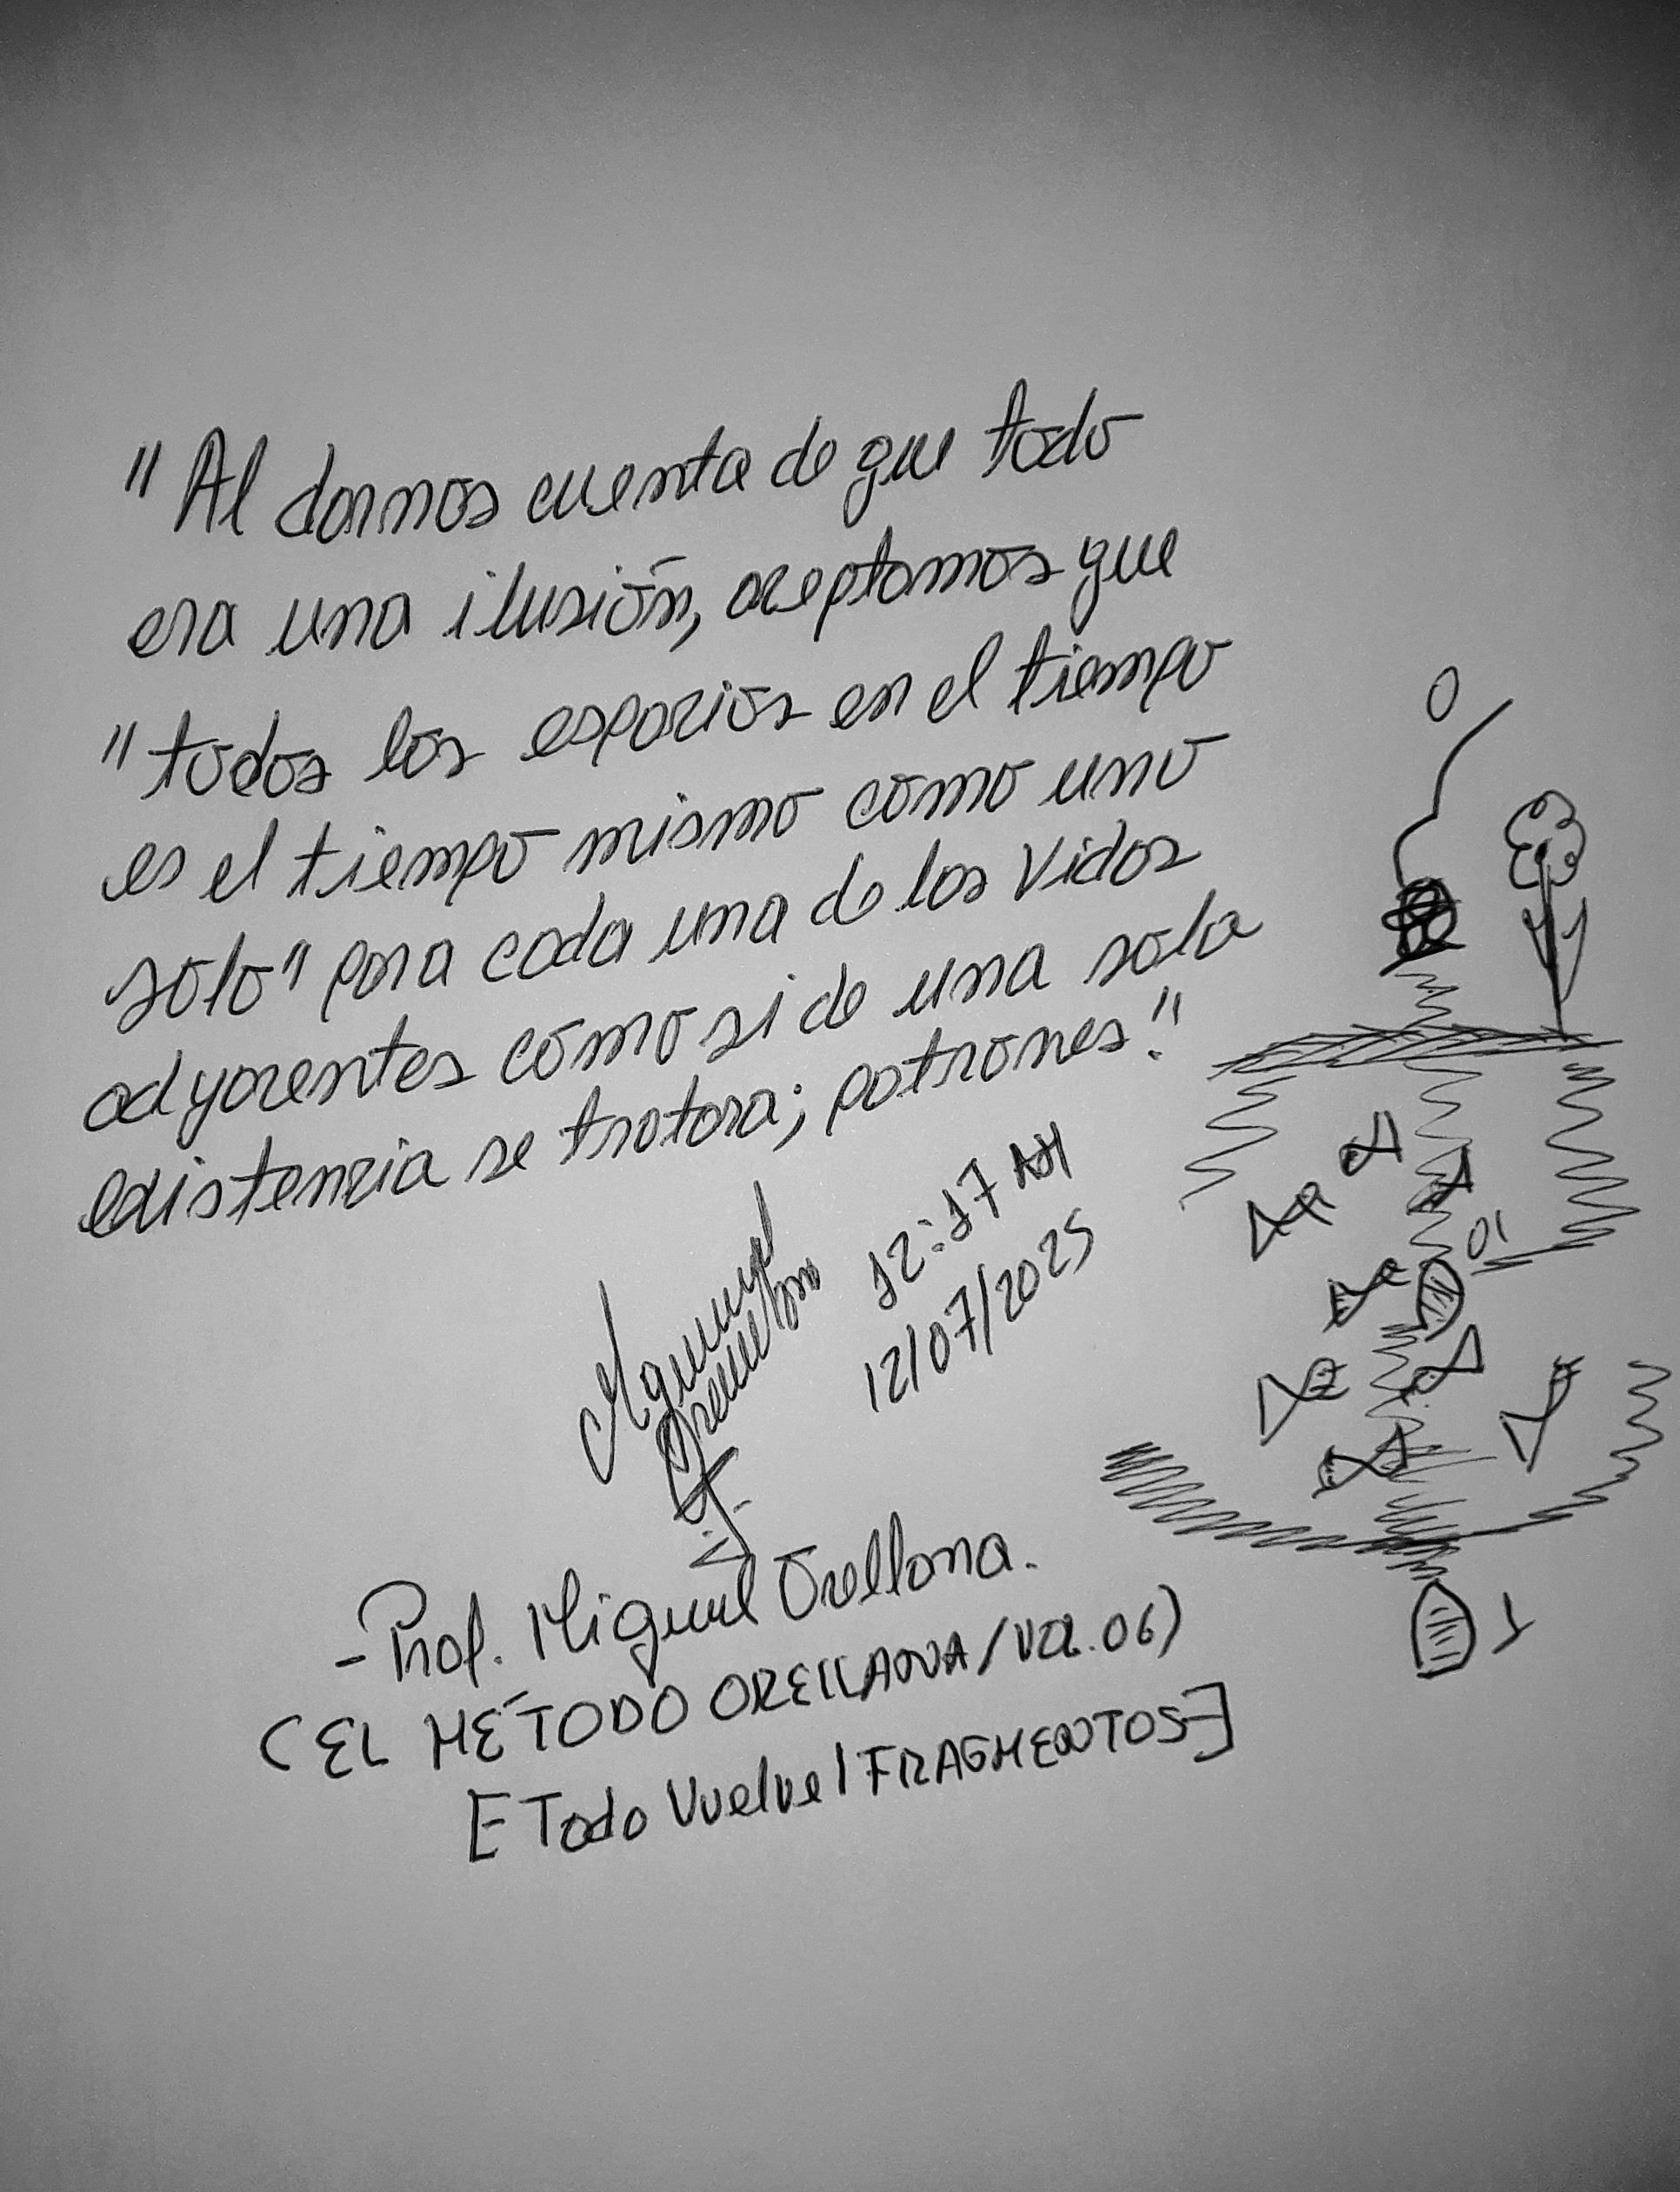 "Al darnos cuenta de que todo
era una ilusión, aceptamos que
"todos los espacios en el tiempo
es el tiempo mismo como uno
solo" para cada una de las vidas
adyacentes como si de una sola
existencia se tratara; patrones."
12:17 AM
12/07/2025
- Prof. Miguel Orellana.
(EL MÉTODO ORELLANA/VOL.06)
[Todo Vuelve/FRAGMENTOS]
0
01
1